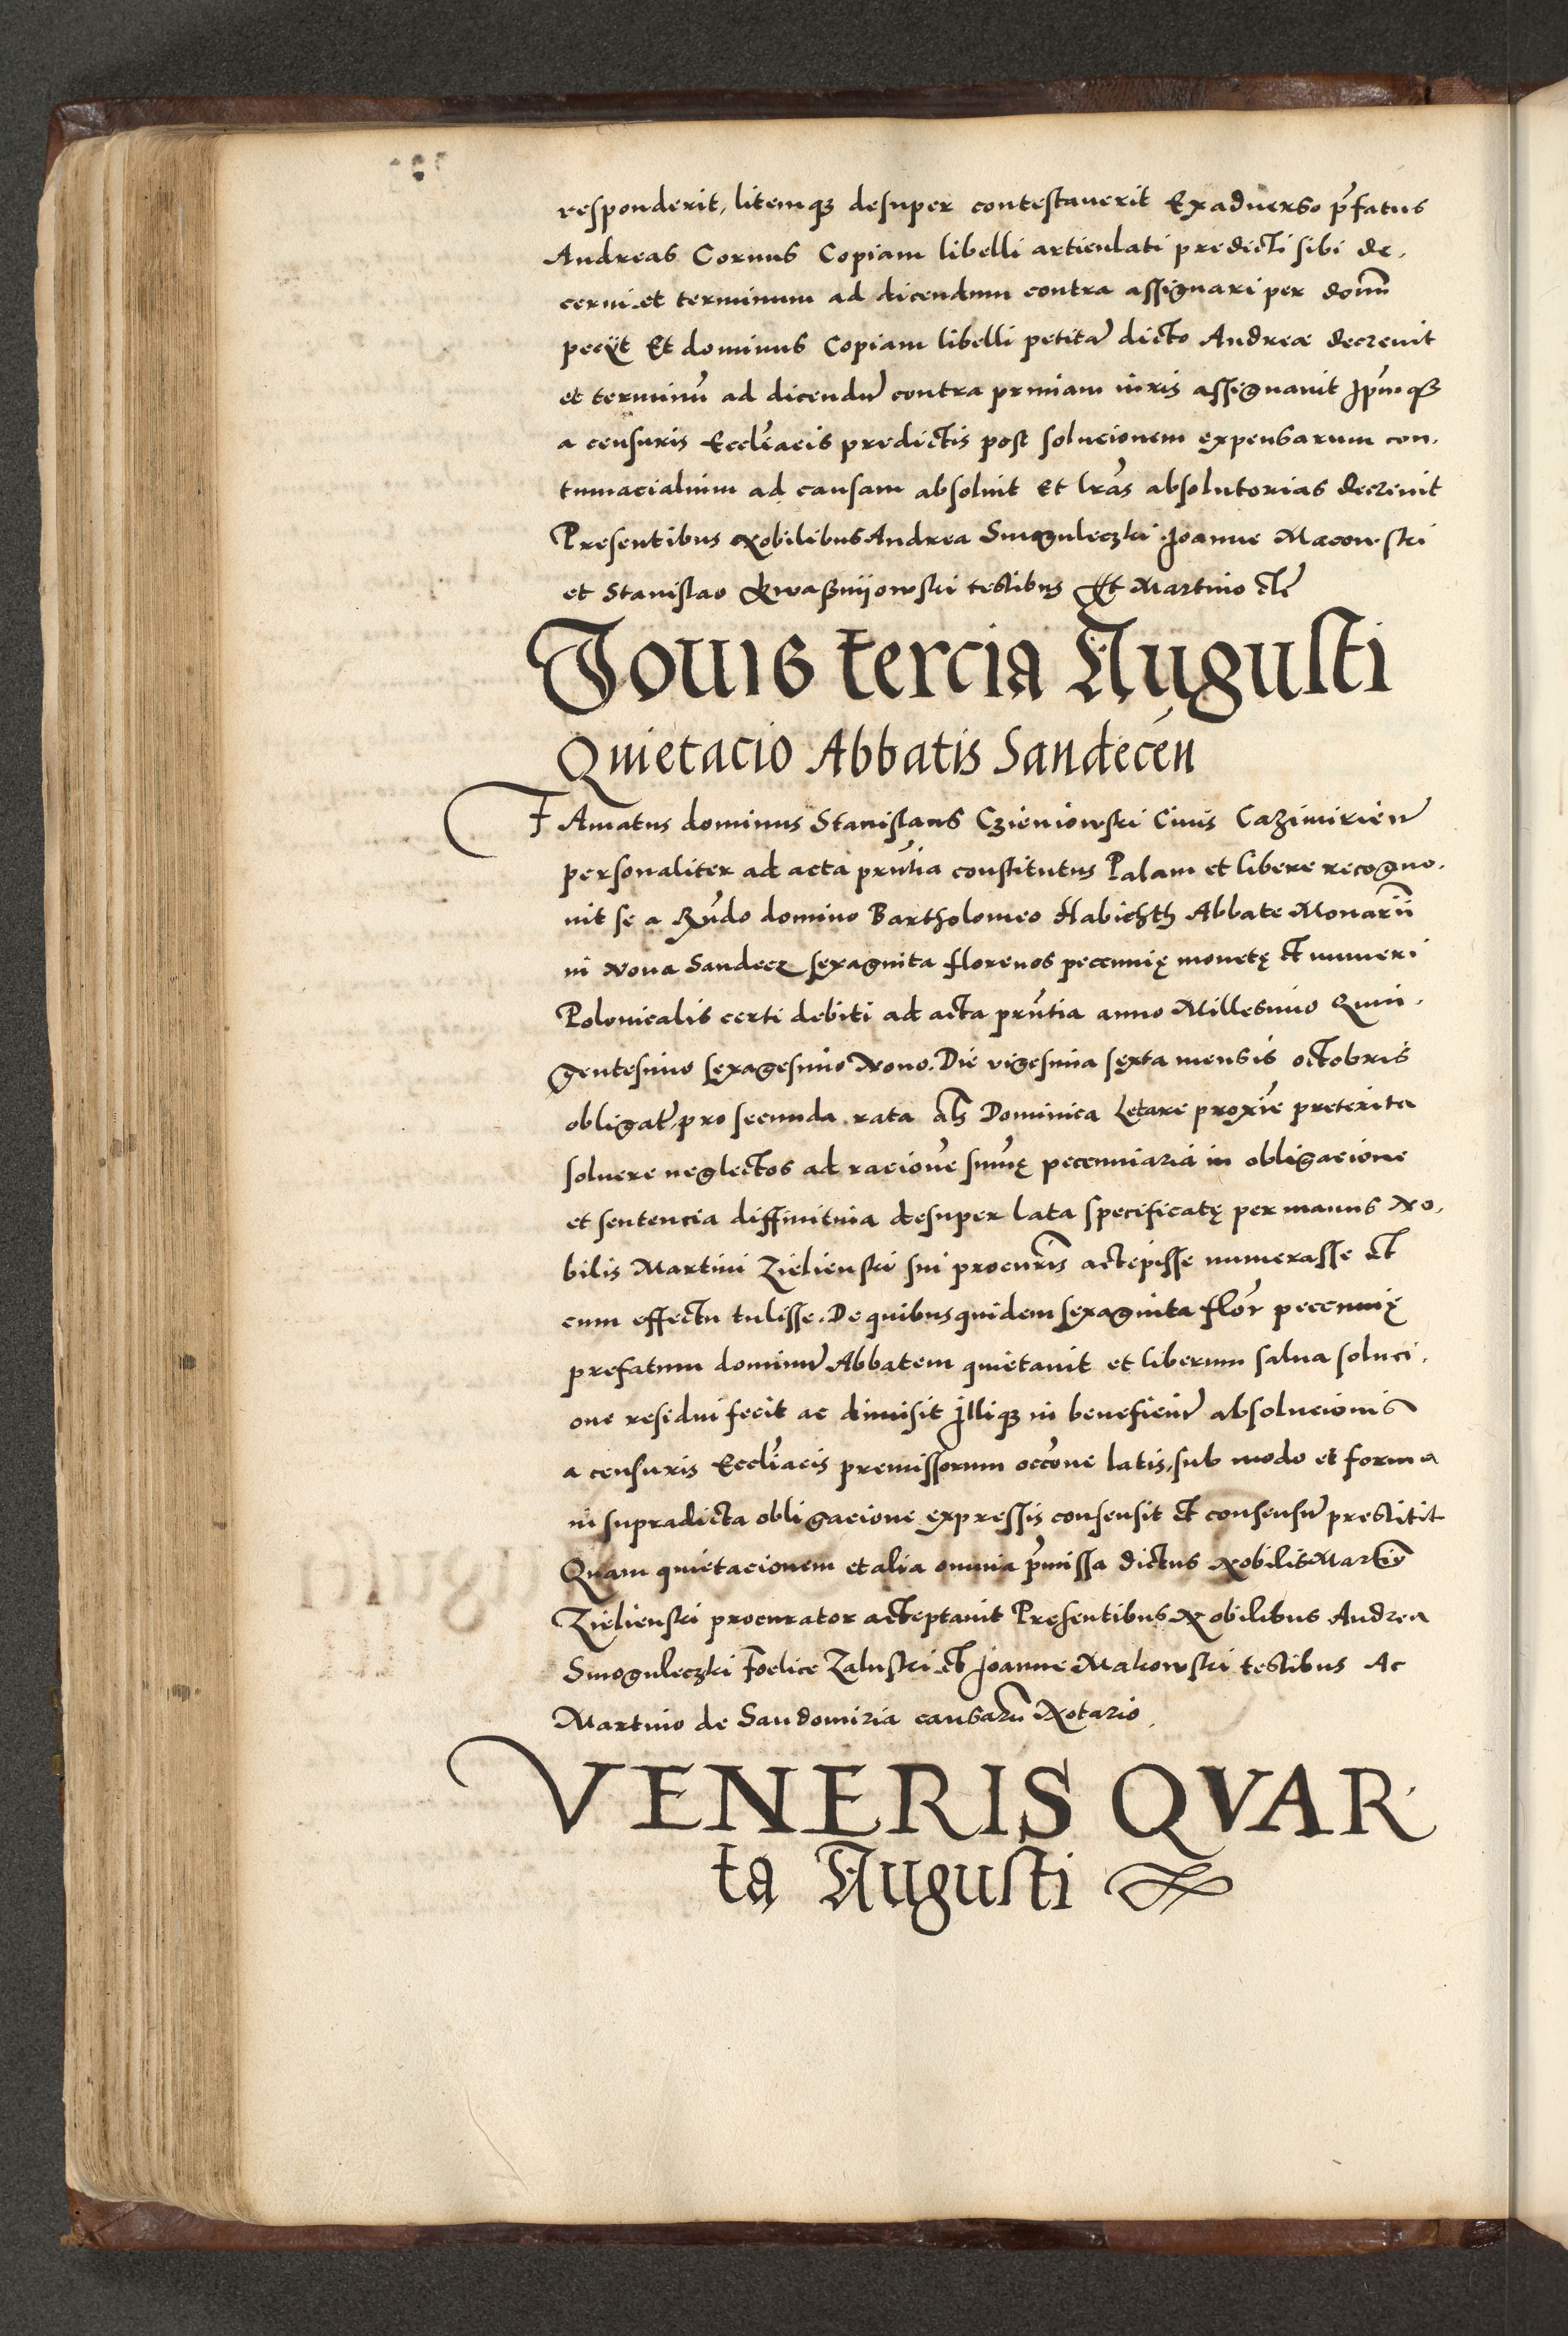 responderit, litemq3 desuper contestauerit Exaduerso p̃fatus
Andreas Cornus Copiam libelli articulati predicti sibi de,
cerni et terminum ad dicendum contra assignari per domũ
pecijt Et dominus Copiam libelli petitã dicto Andreae decreuit
et terminũ ad dicendũ contra primam iuris assignauit Ipm̃q3
a censuris Eccliãcis predictis post solucionem expensarum con,
tumacialium ad causam absoluit Et lrãs absolutorias decreuit
Presentibus Nobilibus Andrea Smoguleczki Joanne Macowski
et Stanislao testibus Et Martino
Jouis tercia Augusti
Quietacio Abbatis Sandecén
FAmatus dominus Stanislaus Czieniowski Ciuis Cazimirień
personaliter ad acta prñtia constitutus Palam et libere recogno,
uit se a Rñdo domino Bartholomeo Habichth Abbate Monarii
in Noua Sandecz sexaginta florenos pecunię monetę et numeri
Polonicalis certi debiti ad acta prñtia anno Millesimo Quin,
gentesimo sexagesimo Nono. Die vigesima sexta mensis octobris
obligat̃, pro secunda rata Dominica Letare proxĩe preterita
soluere neglectos ad racionẽ sum̃ę pecunniaria in obligacione
et sentencia diffinitiua desuper lata specificatę per manus No,
bilis Martini Zielienski sui procuris̃ accepisse numerasse et
cum effectu tulisse. De quibus quidem sexaginta flor̃ pecunnię
prefatum dominũ Abbatem quietauit et liberum salua soluci,
one residui fecit ac dimisit Illiq3 in beneficiũ absolucionis
a censuris Eccliãcis premissorum occõne latis, sub modo et forma
in supradicta obligacione expressis consensit et consensũ prestitit
Quam quietacionem et alia omnia p̃missa dictus Nobilis Martiñ
Zielienski procurator acceptauit Presentibus Nobilibus Andrea
Smoguleczki Foelice Zaluski et Joanne Makowski testibus Ac
Martino de Sandomiria causarũ Notario,
VENERIS QVAR
ta Augusti